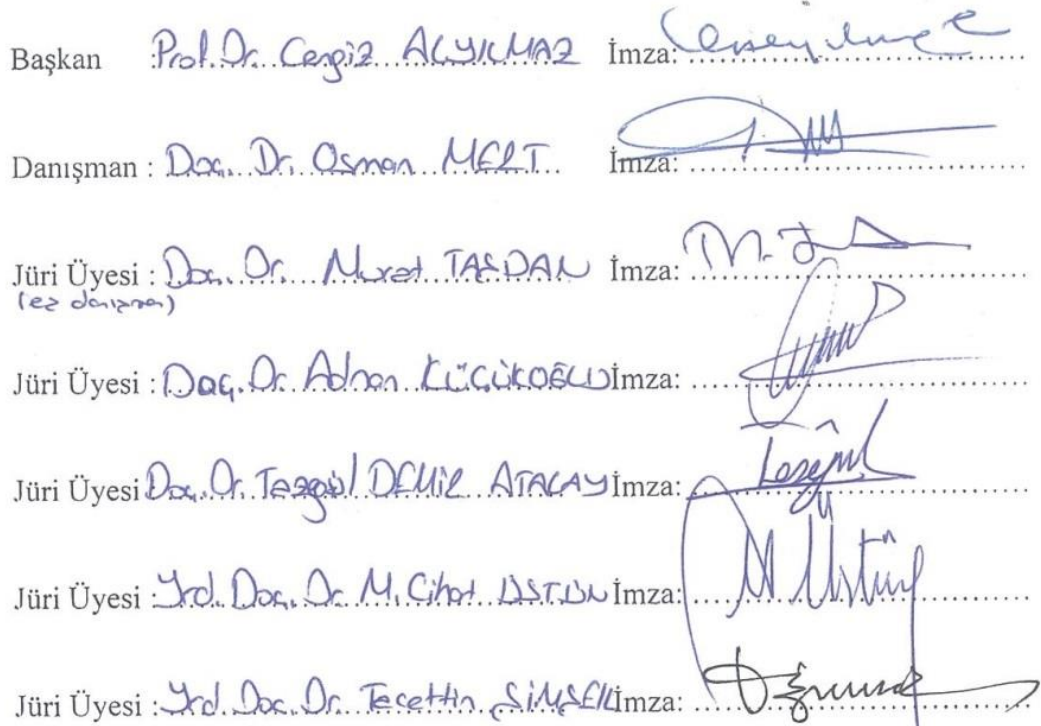 Başkan : Prof. Dr. Cengiz ALYILMAZ İmza:
Danışman : Doç. Dr. Osman MERT İmza:
Jüri Üyesi : Doç. Dr. Murat TAŞDAN İmza: M.
Jüri Üyesi : Doç. Dr. Adnan KÜÇÜKOĞLU İmza:
Jüri Üyesi Doç. Dr. Tezgül DEMİR ATALAY İmza: Tezgül
Jüri Üyesi : Yrd. Doç. Dr. M. Cihat ÜSTÜN İmza: M Üstün
Jüri Üyesi : Yrd. Doç. Dr. Tecettin ŞİMŞEK İmza: